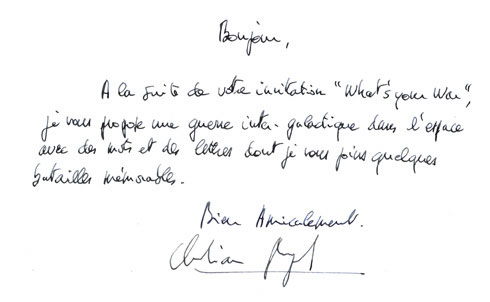 Bonjour,
A la suite de votre invitation "What's your War",
je vous propose une guerre inter-galactique dans l'espace
avec des mots et des lettres dont je vous joins quelques
batailles mémorables.
Bien Amicalement.